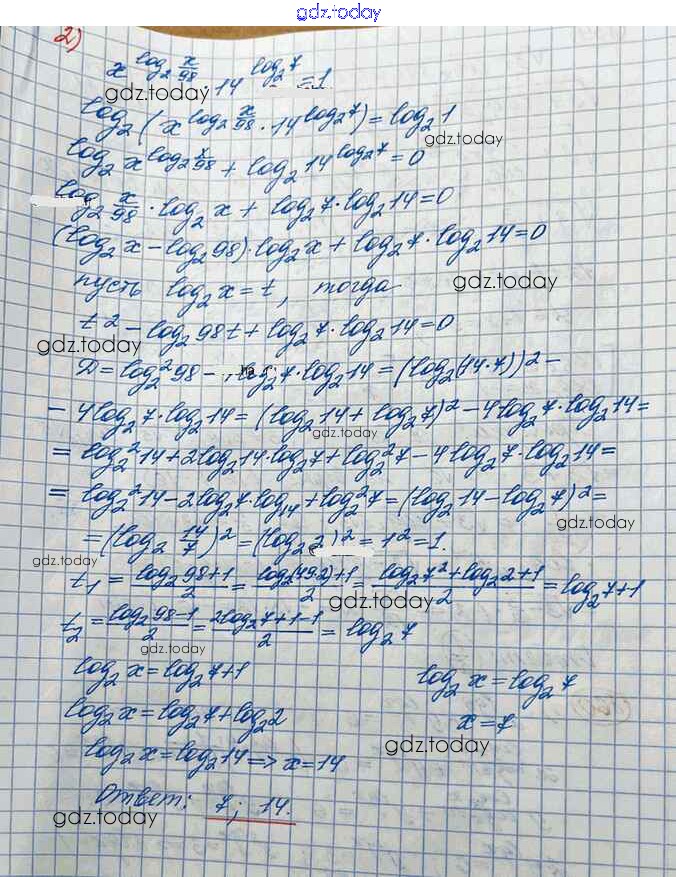 gdz.today
2)
x^(log₂ x/98) · 14^(log₂7) = 1
gdz.today
log₂(x^(log₂ x/98) · 14^(log₂7)) = log₂1
gdz.today
log₂ x^(log₂ x/98) + log₂ 14^(log₂7) = 0
log₂ x/98 · log₂ x + log₂7 · log₂14 = 0
(log₂ x - log₂98) · log₂ x + log₂7 · log₂14 = 0
пусть log₂ x = t, тогда
gdz.today
t² - log₂98t + log₂7 · log₂14 = 0
gdz.today
D = log₂²98 - log₂7 · log₂14 = (log₂(14·7))² -
- 4log₂7 · log₂14 = (log₂14 + log₂7)² - 4log₂7 · log₂14 =
gdz.today
= log₂²14 + 2log₂14 · log₂7 + log₂²7 - 4log₂7 · log₂14 =
= log₂²14 - 2log₂7 · log₁₄ + log₂²7 = (log₂14 - log₂7)² =
gdz.today
= (log₂ 14/7)² = (log₂2)² = 1² = 1.
gdz.today
t₁ = (log₂98+1)/2 = (log₂(49·2)+1)/2 = (log₂7²+log₂2+1)/2 = log₂7+1
gdz.today
t₂ = (log₂98-1)/2 = (2log₂7+1-1)/2 = log₂7
gdz.today
log₂ x = log₂7+1
log₂ x = log₂7 + log₂2
log₂ x = log₂14 => x = 14
log₂ x = log₂7
x = 7
gdz.today
Ответ: 7; 14.
gdz.today